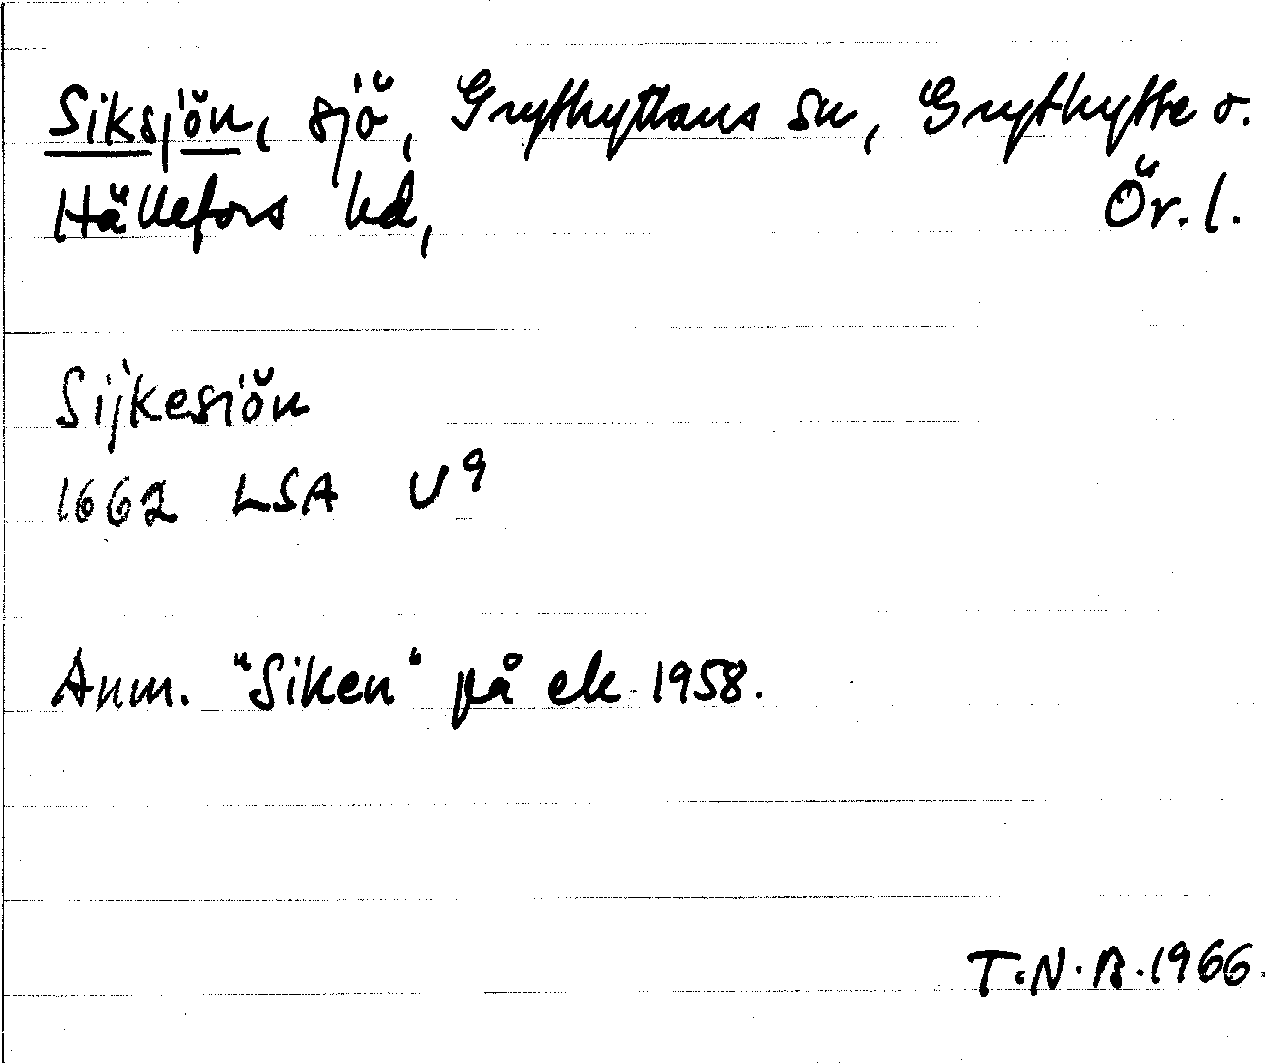 Siksjön, sjö, Grythyttans sn, Grythytte o.
Hällefors hd, Ör. l.
Sijkesiön
1662 LSA U9
Anm. "Siken" på ek 1958.
T.N.B.1966.